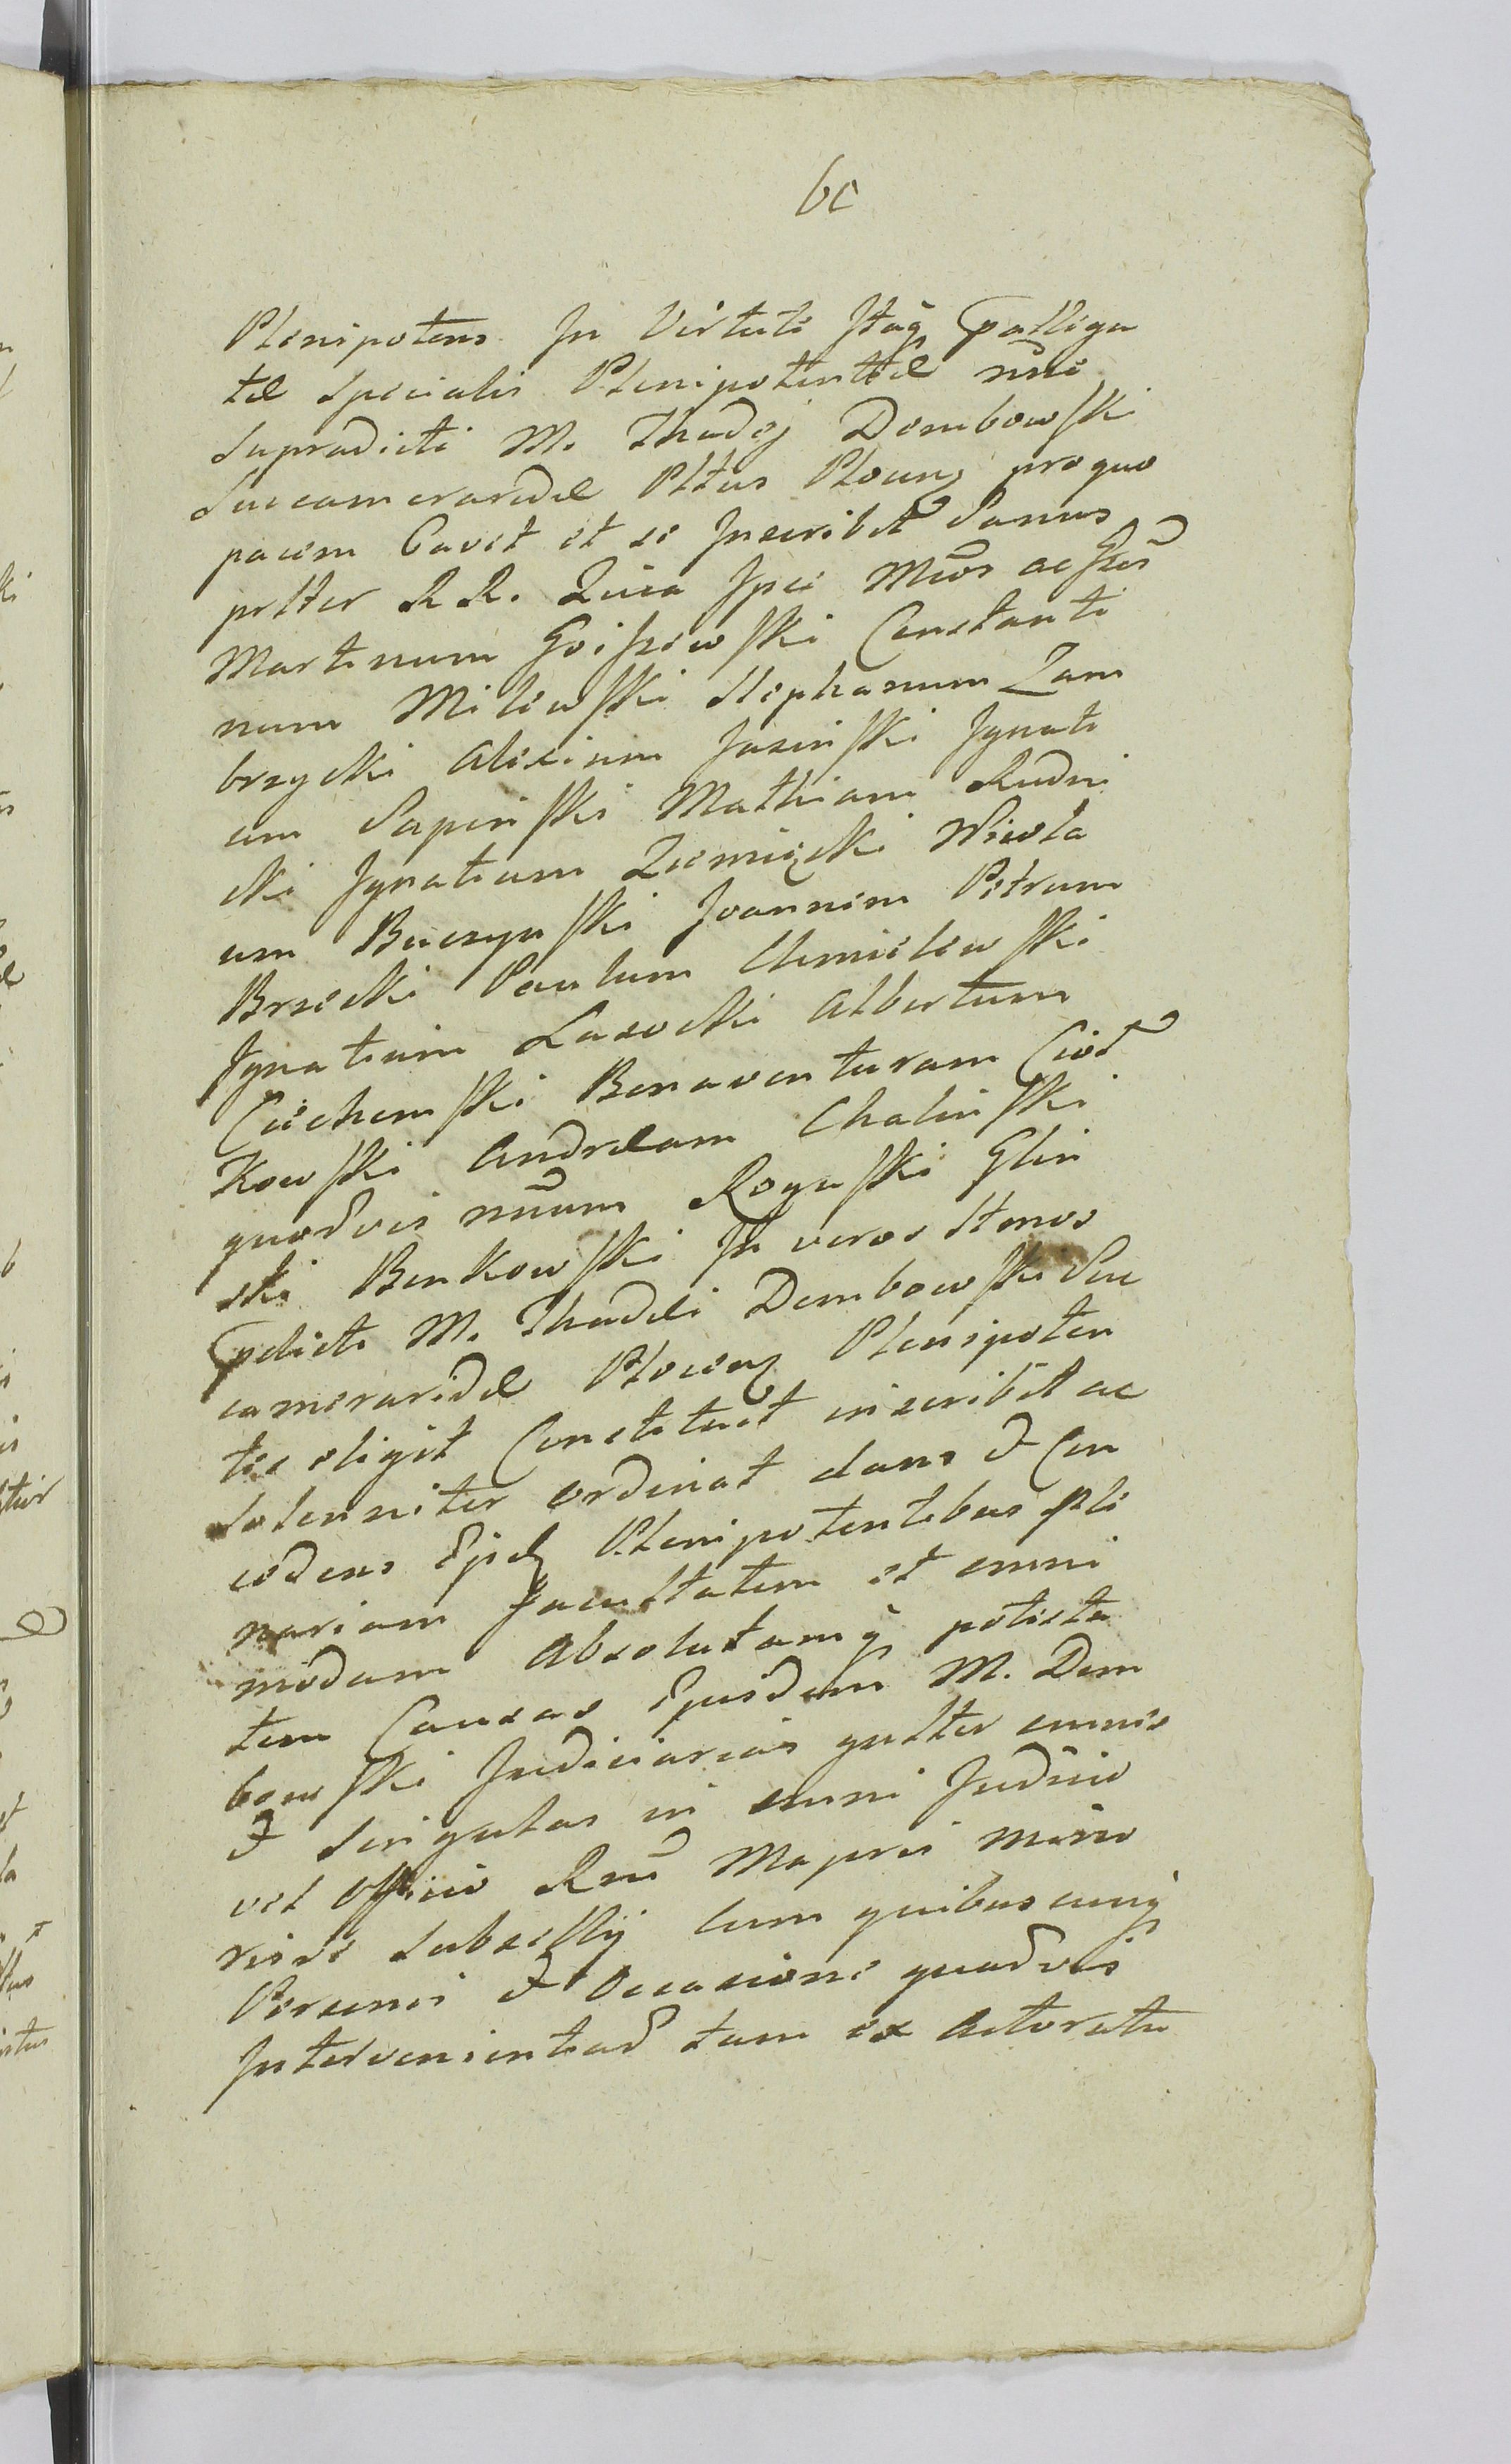 60
Plenipotens. In Virtute Itaq prallega
tæ Specialis Plenipotentiæ nne
Supradicti M. Thadej Dembowski
Succameraridæ Pltus Plocen, pro quo
pacem Cavet et se Inscribit Sanus
prltter R R. Quia Ipse Mcos ac Gsos
Martinum Goiszewski Constanti
num Milewski Stephanum Zam
brzycki Alexium Jasinski Ignati
um Sapinski Mathiam Rudni
cki Ignatium Ziemięcki Nicola
um Buczynski Joannem Petrum
Brzecki Paulum Chmielewski
Ignatium Lasocki Albertum
Ciechomski Bonaventuram Ciot
kowski Andræam Chalinski
quodvis nnum Rogowski Glin
ski Benkowski In veros Itmos
pdicti M. Thadæi Dembowski Suc
cameraridæ Plocen Plenipoten
tes eligit Constituit inscribit ac
Solenniter ordinat dans & Con
cedens Ejsd Plenipotentibus Ple
nariam Facultatem et omni
modam Absolutamq potesta
tem Causas Ejusdem M. Dem
bowski Judiciarias gnltter omnes
& Singulas in omni Judicio
vel Officio Rni Majoris Mino
risve Subsellij Cum quibuscunq
Personis & Occasione quadvis
Intervenientiad tam ex Actoratu